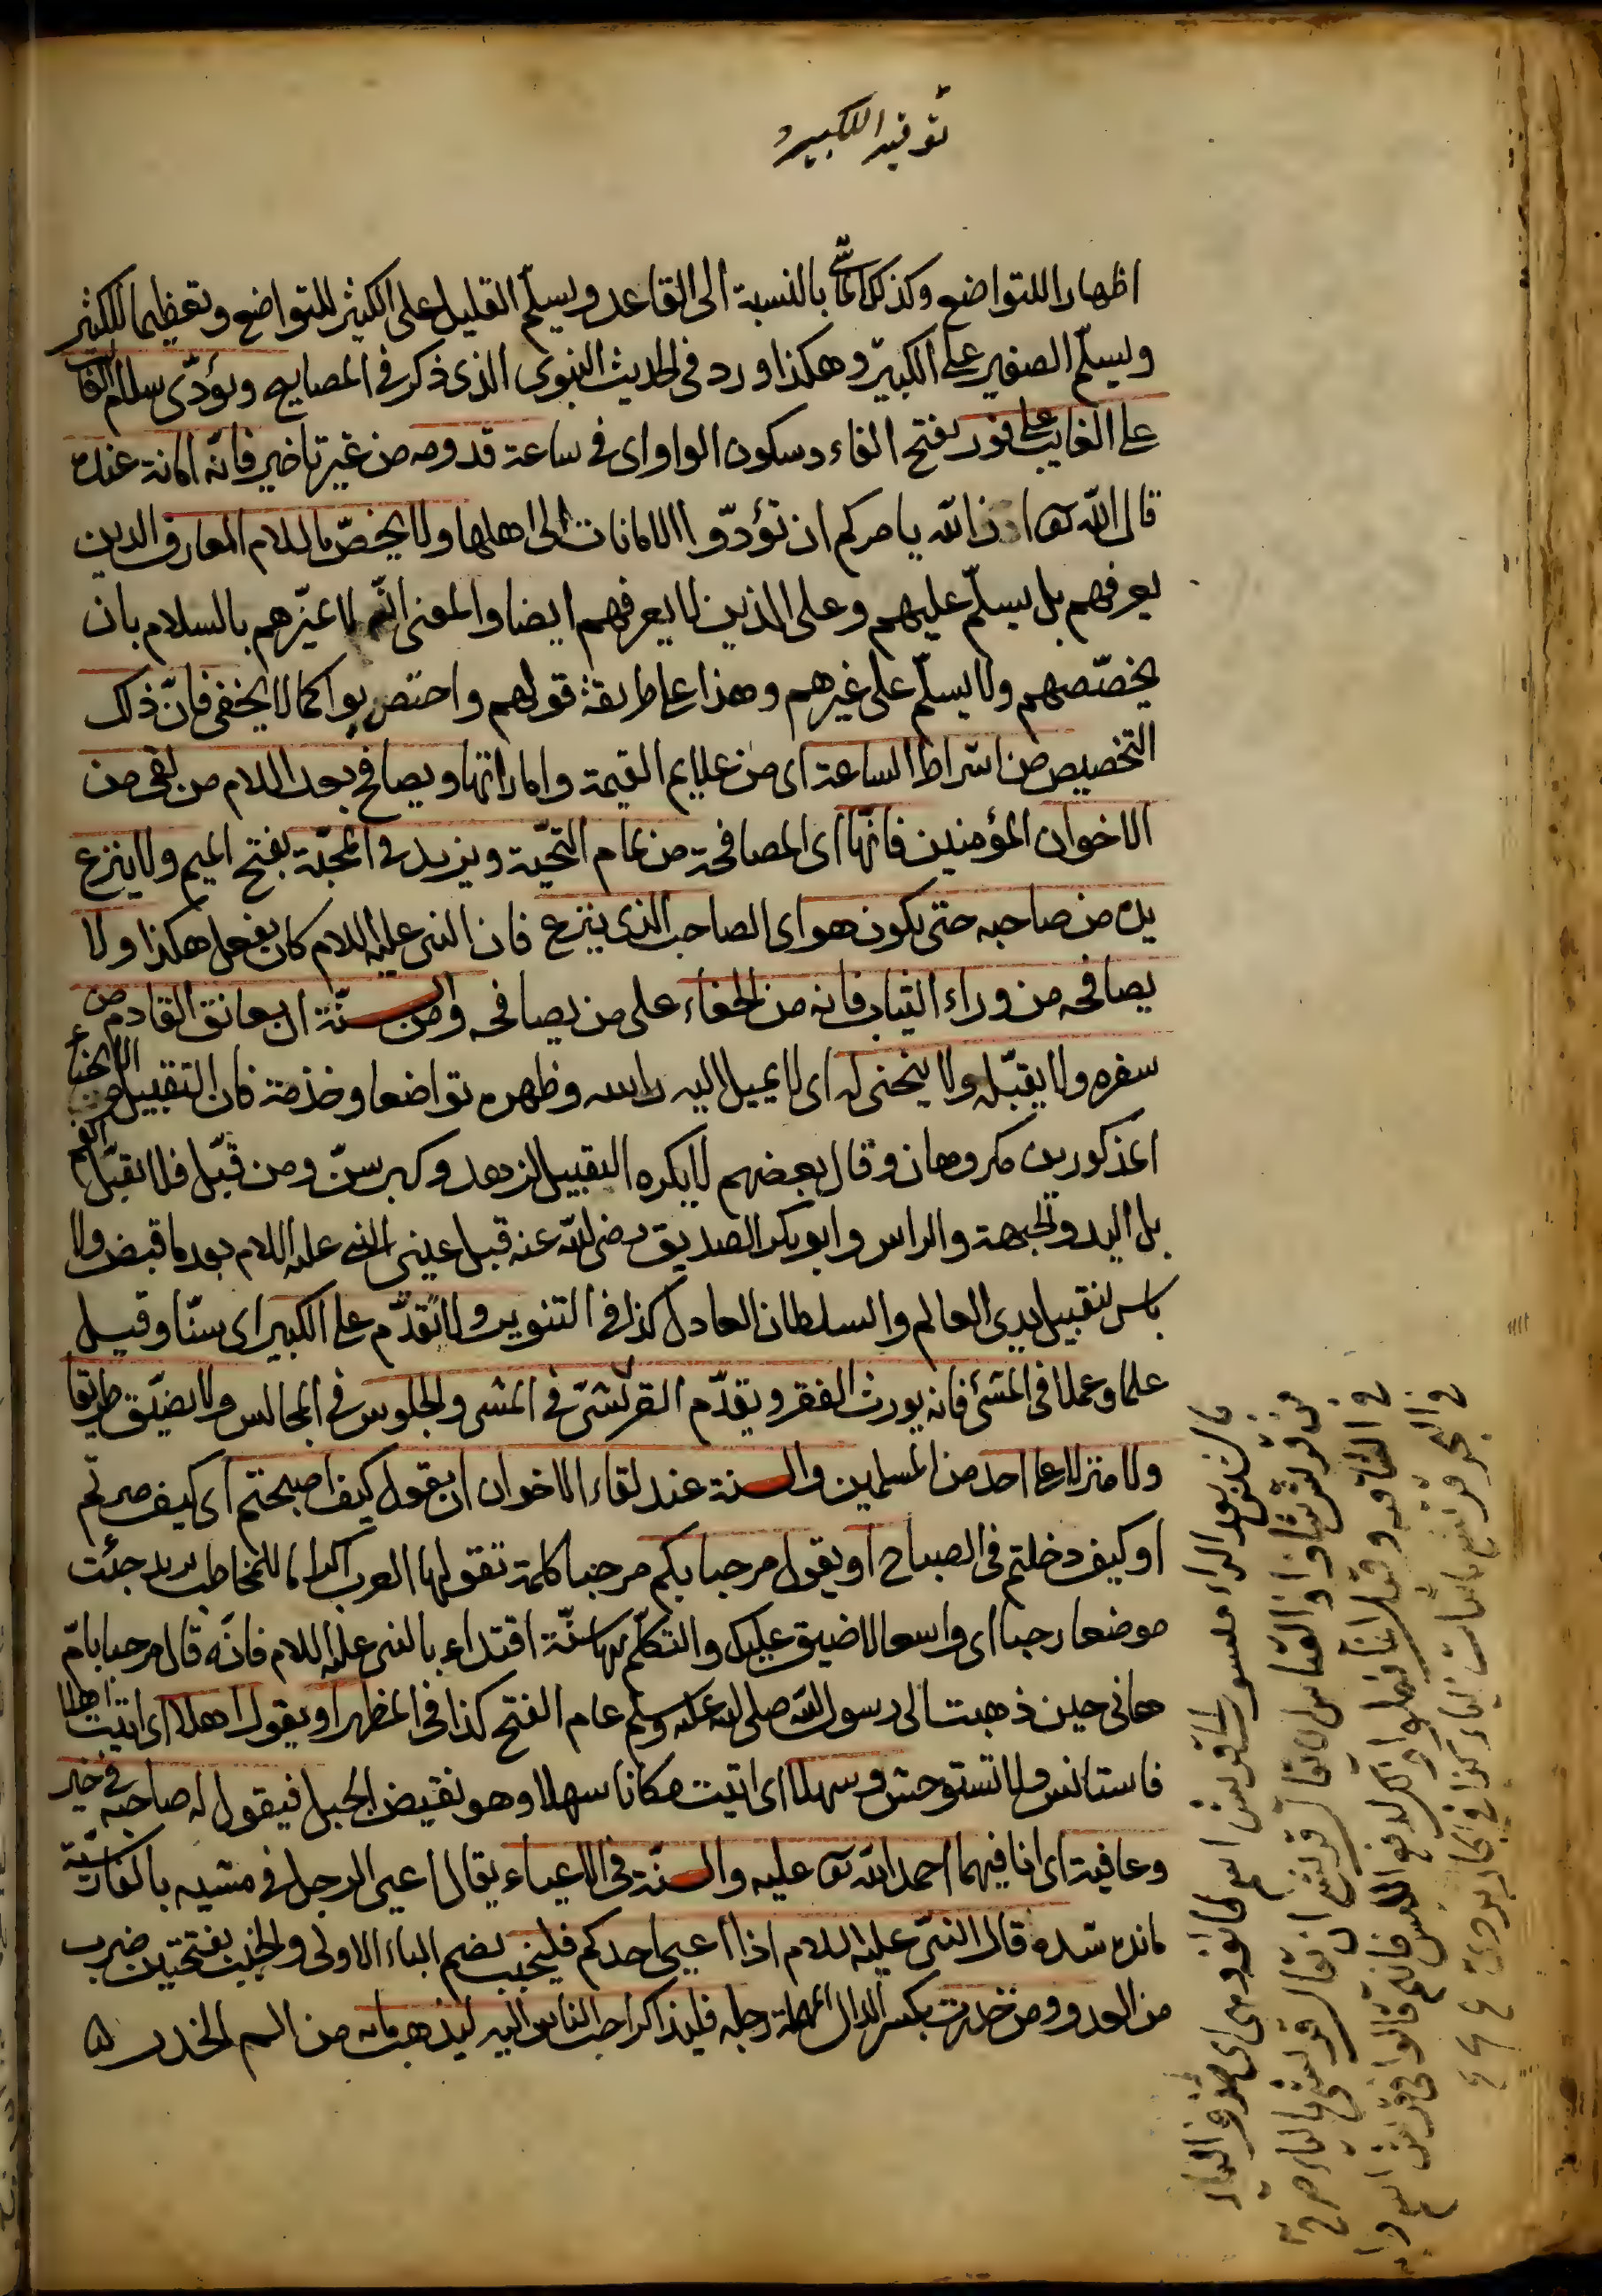 توقير الكبير
اظهارا للتواضع وكذلك الماشى بالنسبة الى القاعد ويسلّم القليل على الكثير للتواضع وتعظيما للكثير
ويسلّم الصغير على الكبير وهكذا ورد فى الحديث النبوى الذى ذكر فى المصابيح ويؤدّى سلام الغائب
على الغايب على فور بفتح الفاء وسكون الواو اى فى ساعة قدومه من غير تاخير فانّه امانة عنده
قال الله تعالى ان الله يامركم ان تؤدّوا الامانات الى اهلها ولا يخصّ بالسلام المعارف الذين
يعرفهم بل يسلّم عليهم وعلى الذين لا يعرفهم ايضا والمعنى انّه لا يميّزهم بالسلام بان
يخصّصهم ولا يسلّم على غيرهم وهذا على طريقة قولهم واختص بواكما لا يخفى فانّ ذلك
التخصيص من اشراط الساعة اى من علايم القيمة واماراتها ويصافح بعد السلام من لقى من
الاخوان المؤمنين فانّها اى المصافحة من تمام التحيّة ويزيد فى المحبّة بفتح الميم ولا ينزع
يده من صاحبه حتى يكون هو اى الصاحب الذى ينزع فان النبى عليه السلام كان يفعل هكذا ولا
يصافحه من وراء الثياب فانه من الجفاء على من يصافحه ومن السنّة ان يعانق القادم من
سفره ولا يقبّله ولا ينحنى له اى لا يميل اليه راسه وظهره تواضعا وخدمة فان التقبيل والانحناء
المذكورين مكروهان وقال بعضهم لا يكره التقبيل لزهد وكبر سنّ ومن قبّل فلا يقبّل الفم
بل اليد والجبهة والراس وابو بكر الصديق رضى الله عنه قبل عينى النبى عليه السلام بعد ما قبض ولا
باس بتقبيل يدى العالم والسلطان العادل كذا فى التنوير ولا يتقدّم على الكبير اى سنّا وقيل
علما وعملا فى المشى فانه يورث الفقر ويتقدّم القرشىّ فى المشى والجلوس فى المجالس ولا يضيّق طريقا
ولا منزلا على احد من المسلمين والسنة عند لقاء الاخوان ان يقول كيف اصبحتم اى كيف صرتم
او كيف دخلتم فى الصباح او يقول مرحبا بكم مرحبا كلمة تقولها العرب اكراما للمخاطب يريد جئت
موضعا رحبا اى واسعا لا ضيق عليك والتكلّم بها سنّة اقتداء بالنبى عليه السلام فانّه قال مرحبا بامّ
هانى حين ذهبت الى رسول الله صلى الله عليه وسلم عام الفتح كذا فى المظهر او يقول اهلا اى اتيت اهلا
فاستانس ولا تستوحش وسهلا اى اتيت مكانا سهلا وهو نقيض الجبل فيقول له صاحبه فى خير
وعافية اى انا فيهما احمد الله تعالى عليه والسنّة فى الاعياء يقال اعيى الرجل فى مشيه بالفارسيّة
مانده شده قال النبىّ عليه السلام اذا اعيى احدكم فليخبب بضم الباء الاولى والخبب بفتحتين ضرب
من العدو ومن خدرت بكسر الدال المهملة رجله فليذكر احب الناس اليه ليذهب ما به من الم الخدر